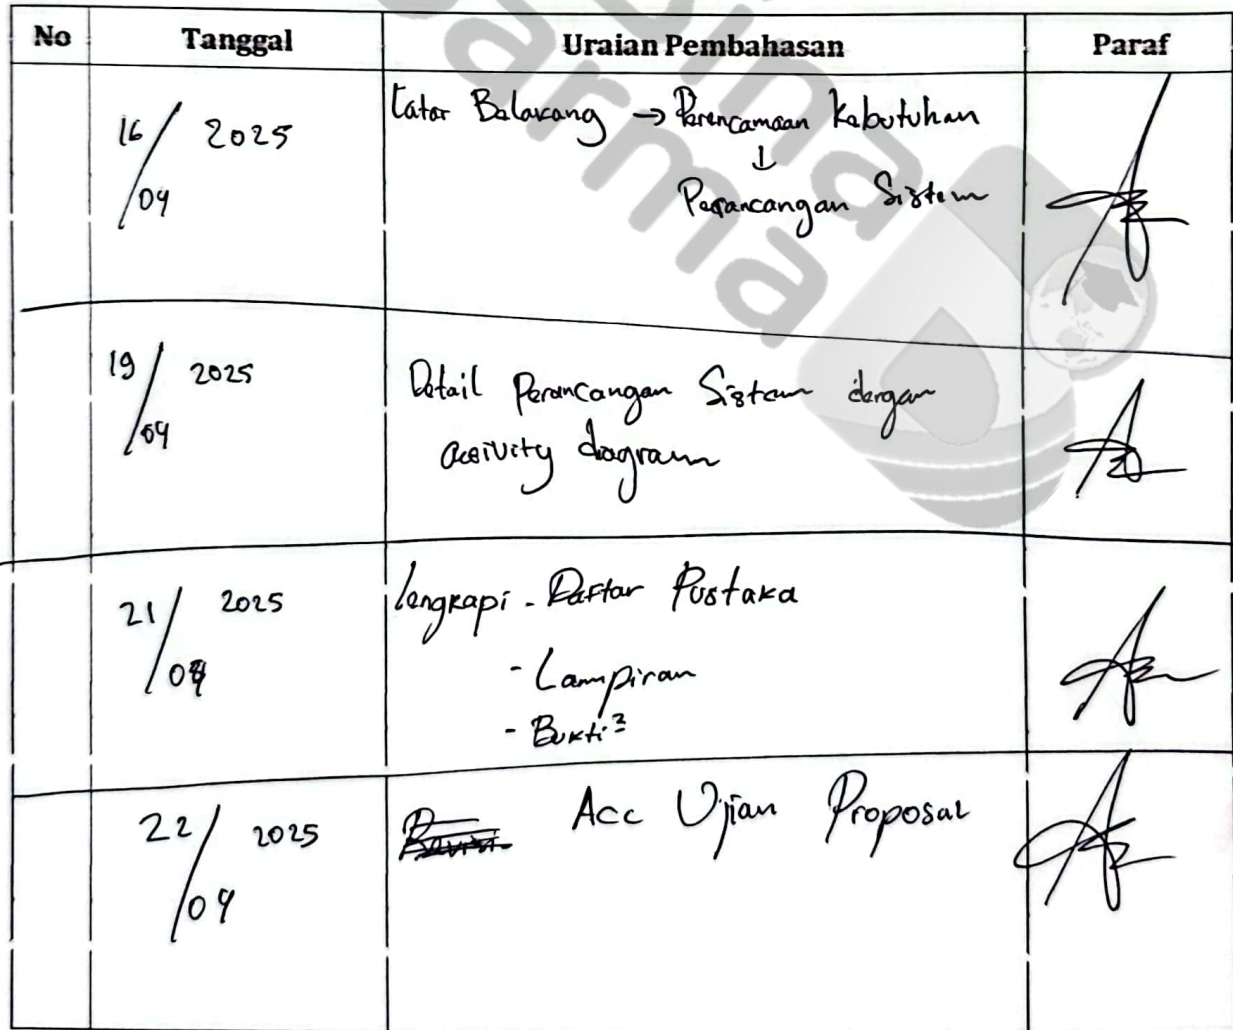 No Tanggal Uraian Pembahasan Paraf
16/04 2025 Latar Belakang → Perencanaan Kebutuhan
↓
Perancangan Sistem
19/04 2025 Detail Perancangan Sistem dengan
activity diagram
21/04 2025 lengkapi - Daftar Pustaka
- Lampiran
- Bukti²
22/04 2025 Acc Ujian Proposal